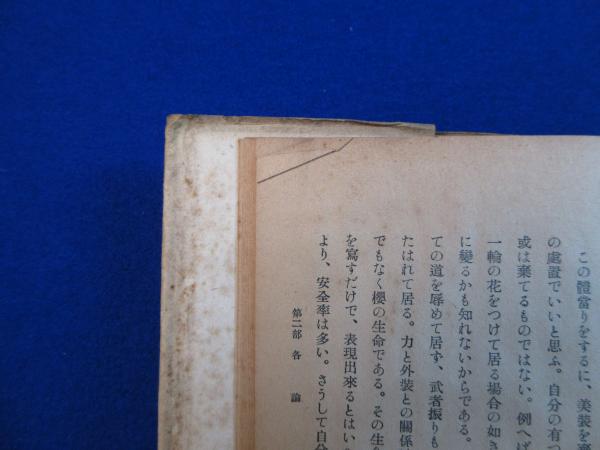 この體當りをするに、美装を
の處置でいいと思ふ。自分の有つ
或は棄てるものではない。例へば
一輪の花をつけて居る場合の如き
に變るかも知れないからである。
ての道を辱めて居ず、武者振りも
たはれて居る。力と外装との關係
でもなく櫻の生命である。その生
を寫すだけで、表現出來るとはい
より、安全率は多い。さうして自分
第二部 各論